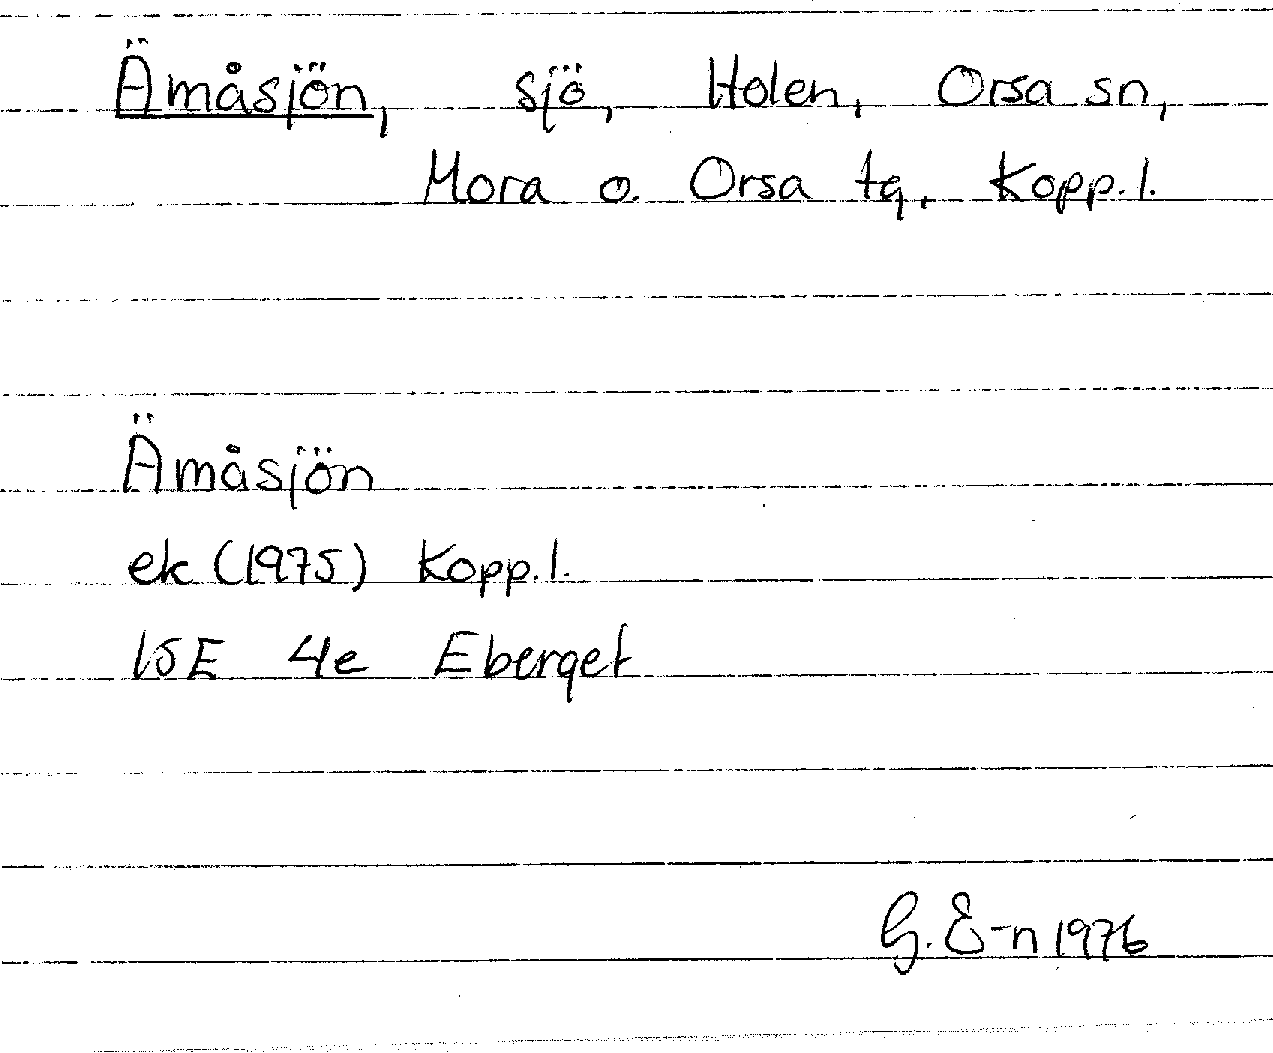 Ämåsjön, sjö, Holen, Orsa sn,
Mora o. Orsa tg. Kopp.l.
Ämåsjön
ek (1975) Kopp.l.
15E 4e Eberget
G. E-n 1976